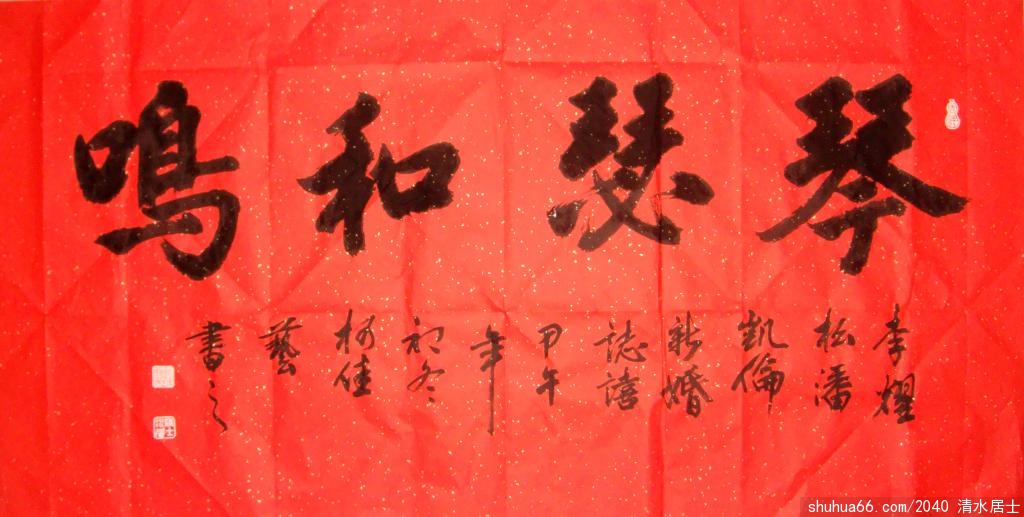 琴瑟和鳴
李耀
松潘
凱倫
新婚
誌禧
甲午
年
初冬
柯佳
藝
書之
shuhua66.com/2040 清水居士